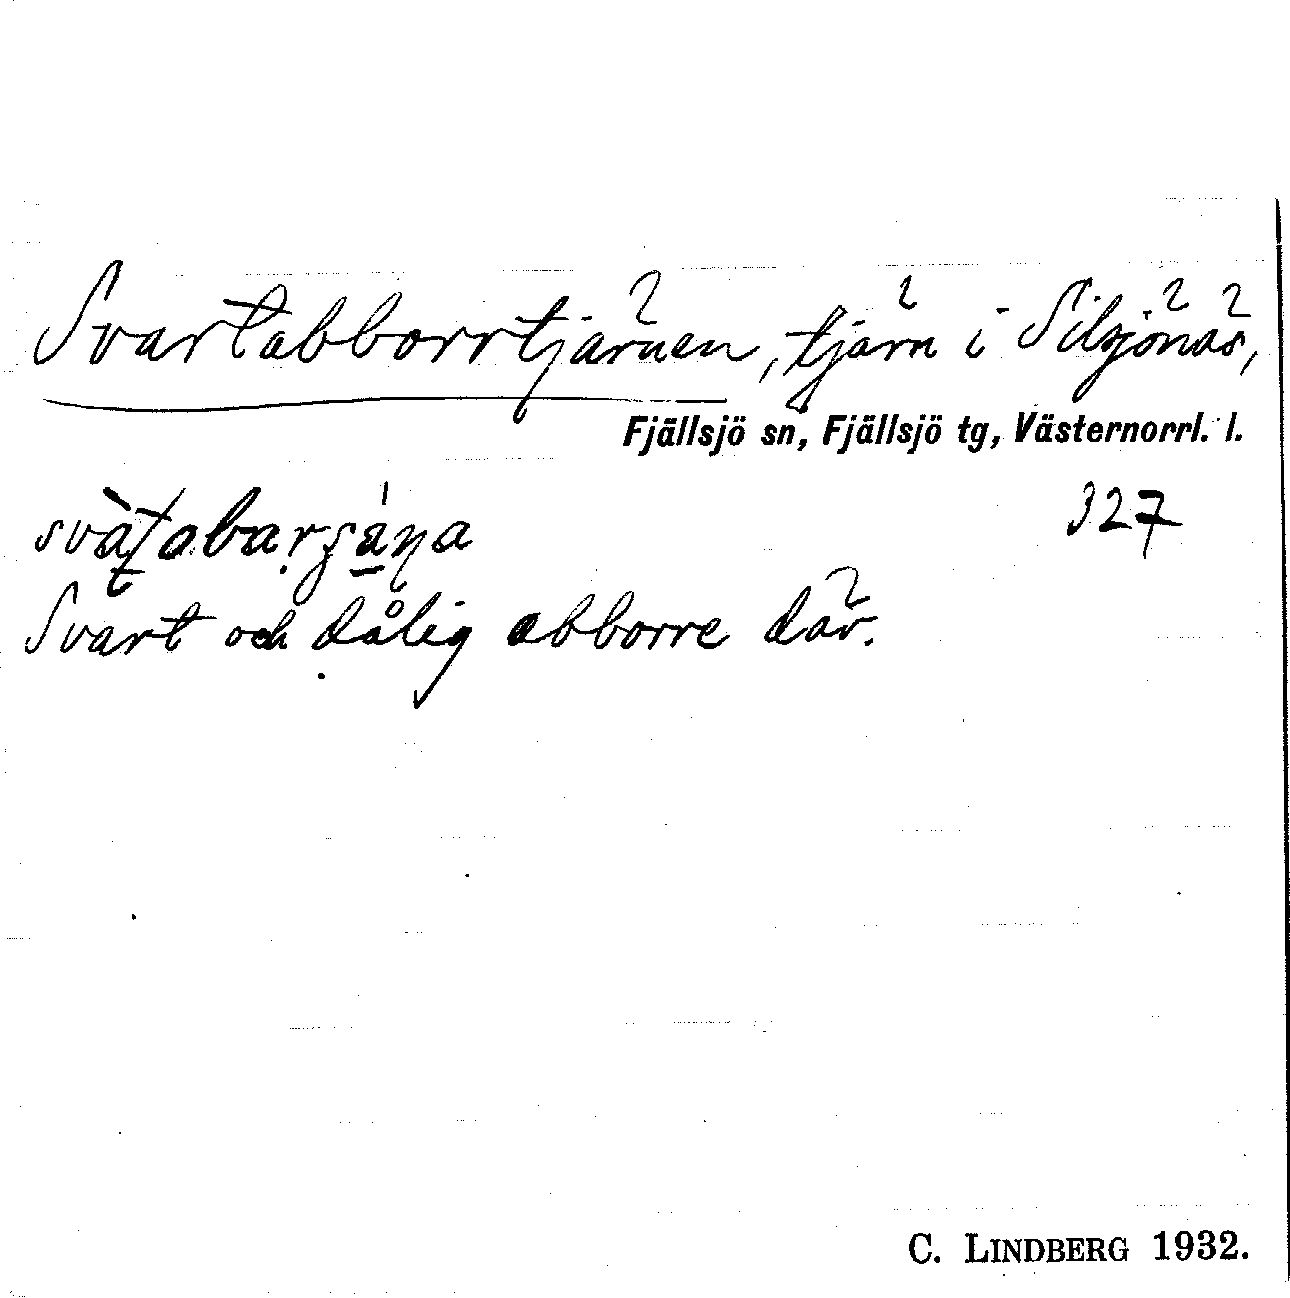 Svartabborrtjärnen, tjärn i Silsjönäs,
Fjällsjö sn, Fjällsjö tg, Västernorrl. l.
327
Svart och dålig abborre där.
C. LINDBERG 1932.